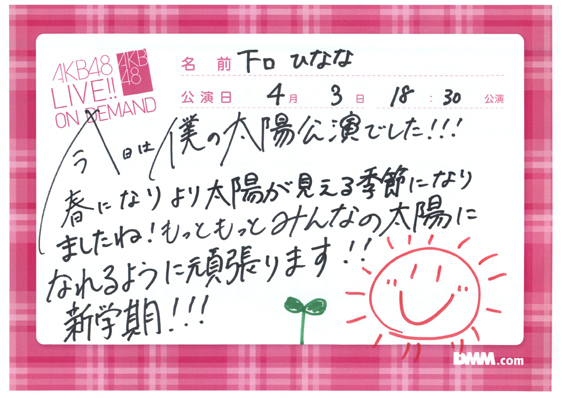 AKB48
LIVE!!
ON DEMAND
AKB
48
名前 下口 ひなな
公演日 4月 3日 18:30 公演
今日は僕の太陽公演でした!!!
春になりより太陽が見える季節になり
ましたね!もっともっとみんなの太陽に
なれるように頑張ります!!
新学期!!!
DMM.com